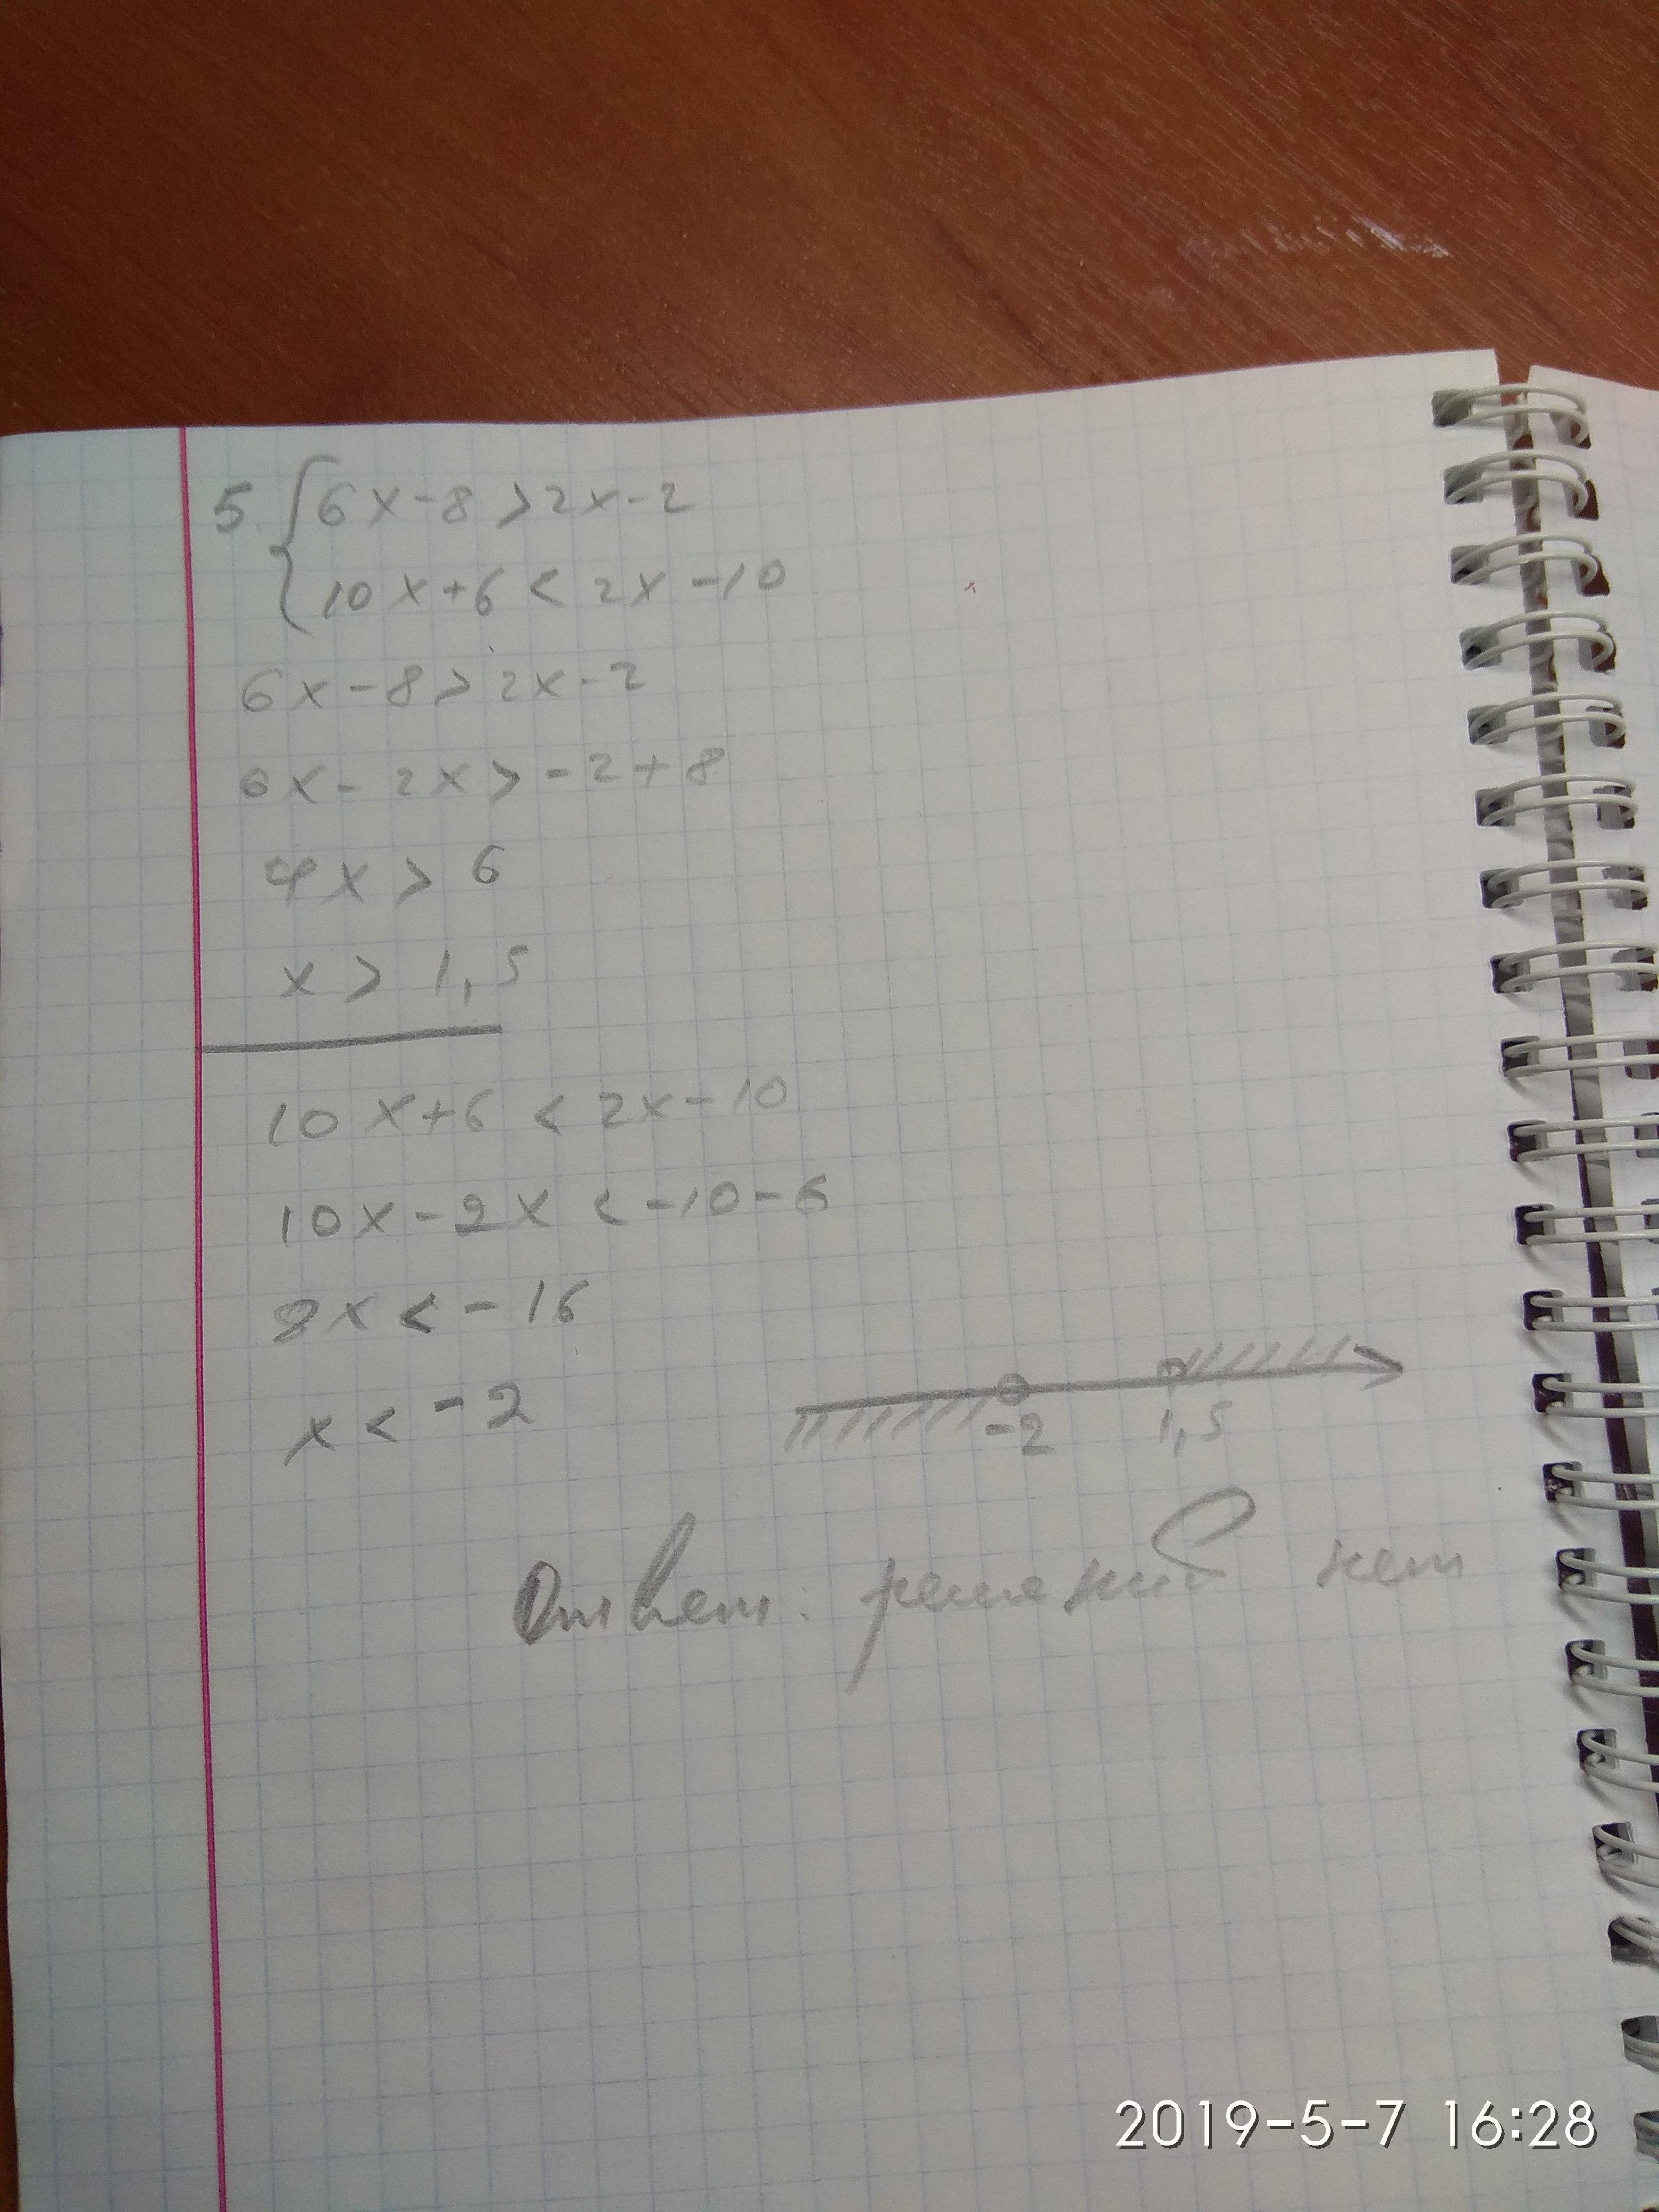 5. { 6x-8>2x-2
10x+6<2x-10
6x-8>2x-2
6x-2x>-2+8
4x>6
x>1,5
10x+6<2x-10
10x-2x<-10-6
8x<-16
x<-2
-2 1,5
Ответ: решений нет
2019-5-7 16:28